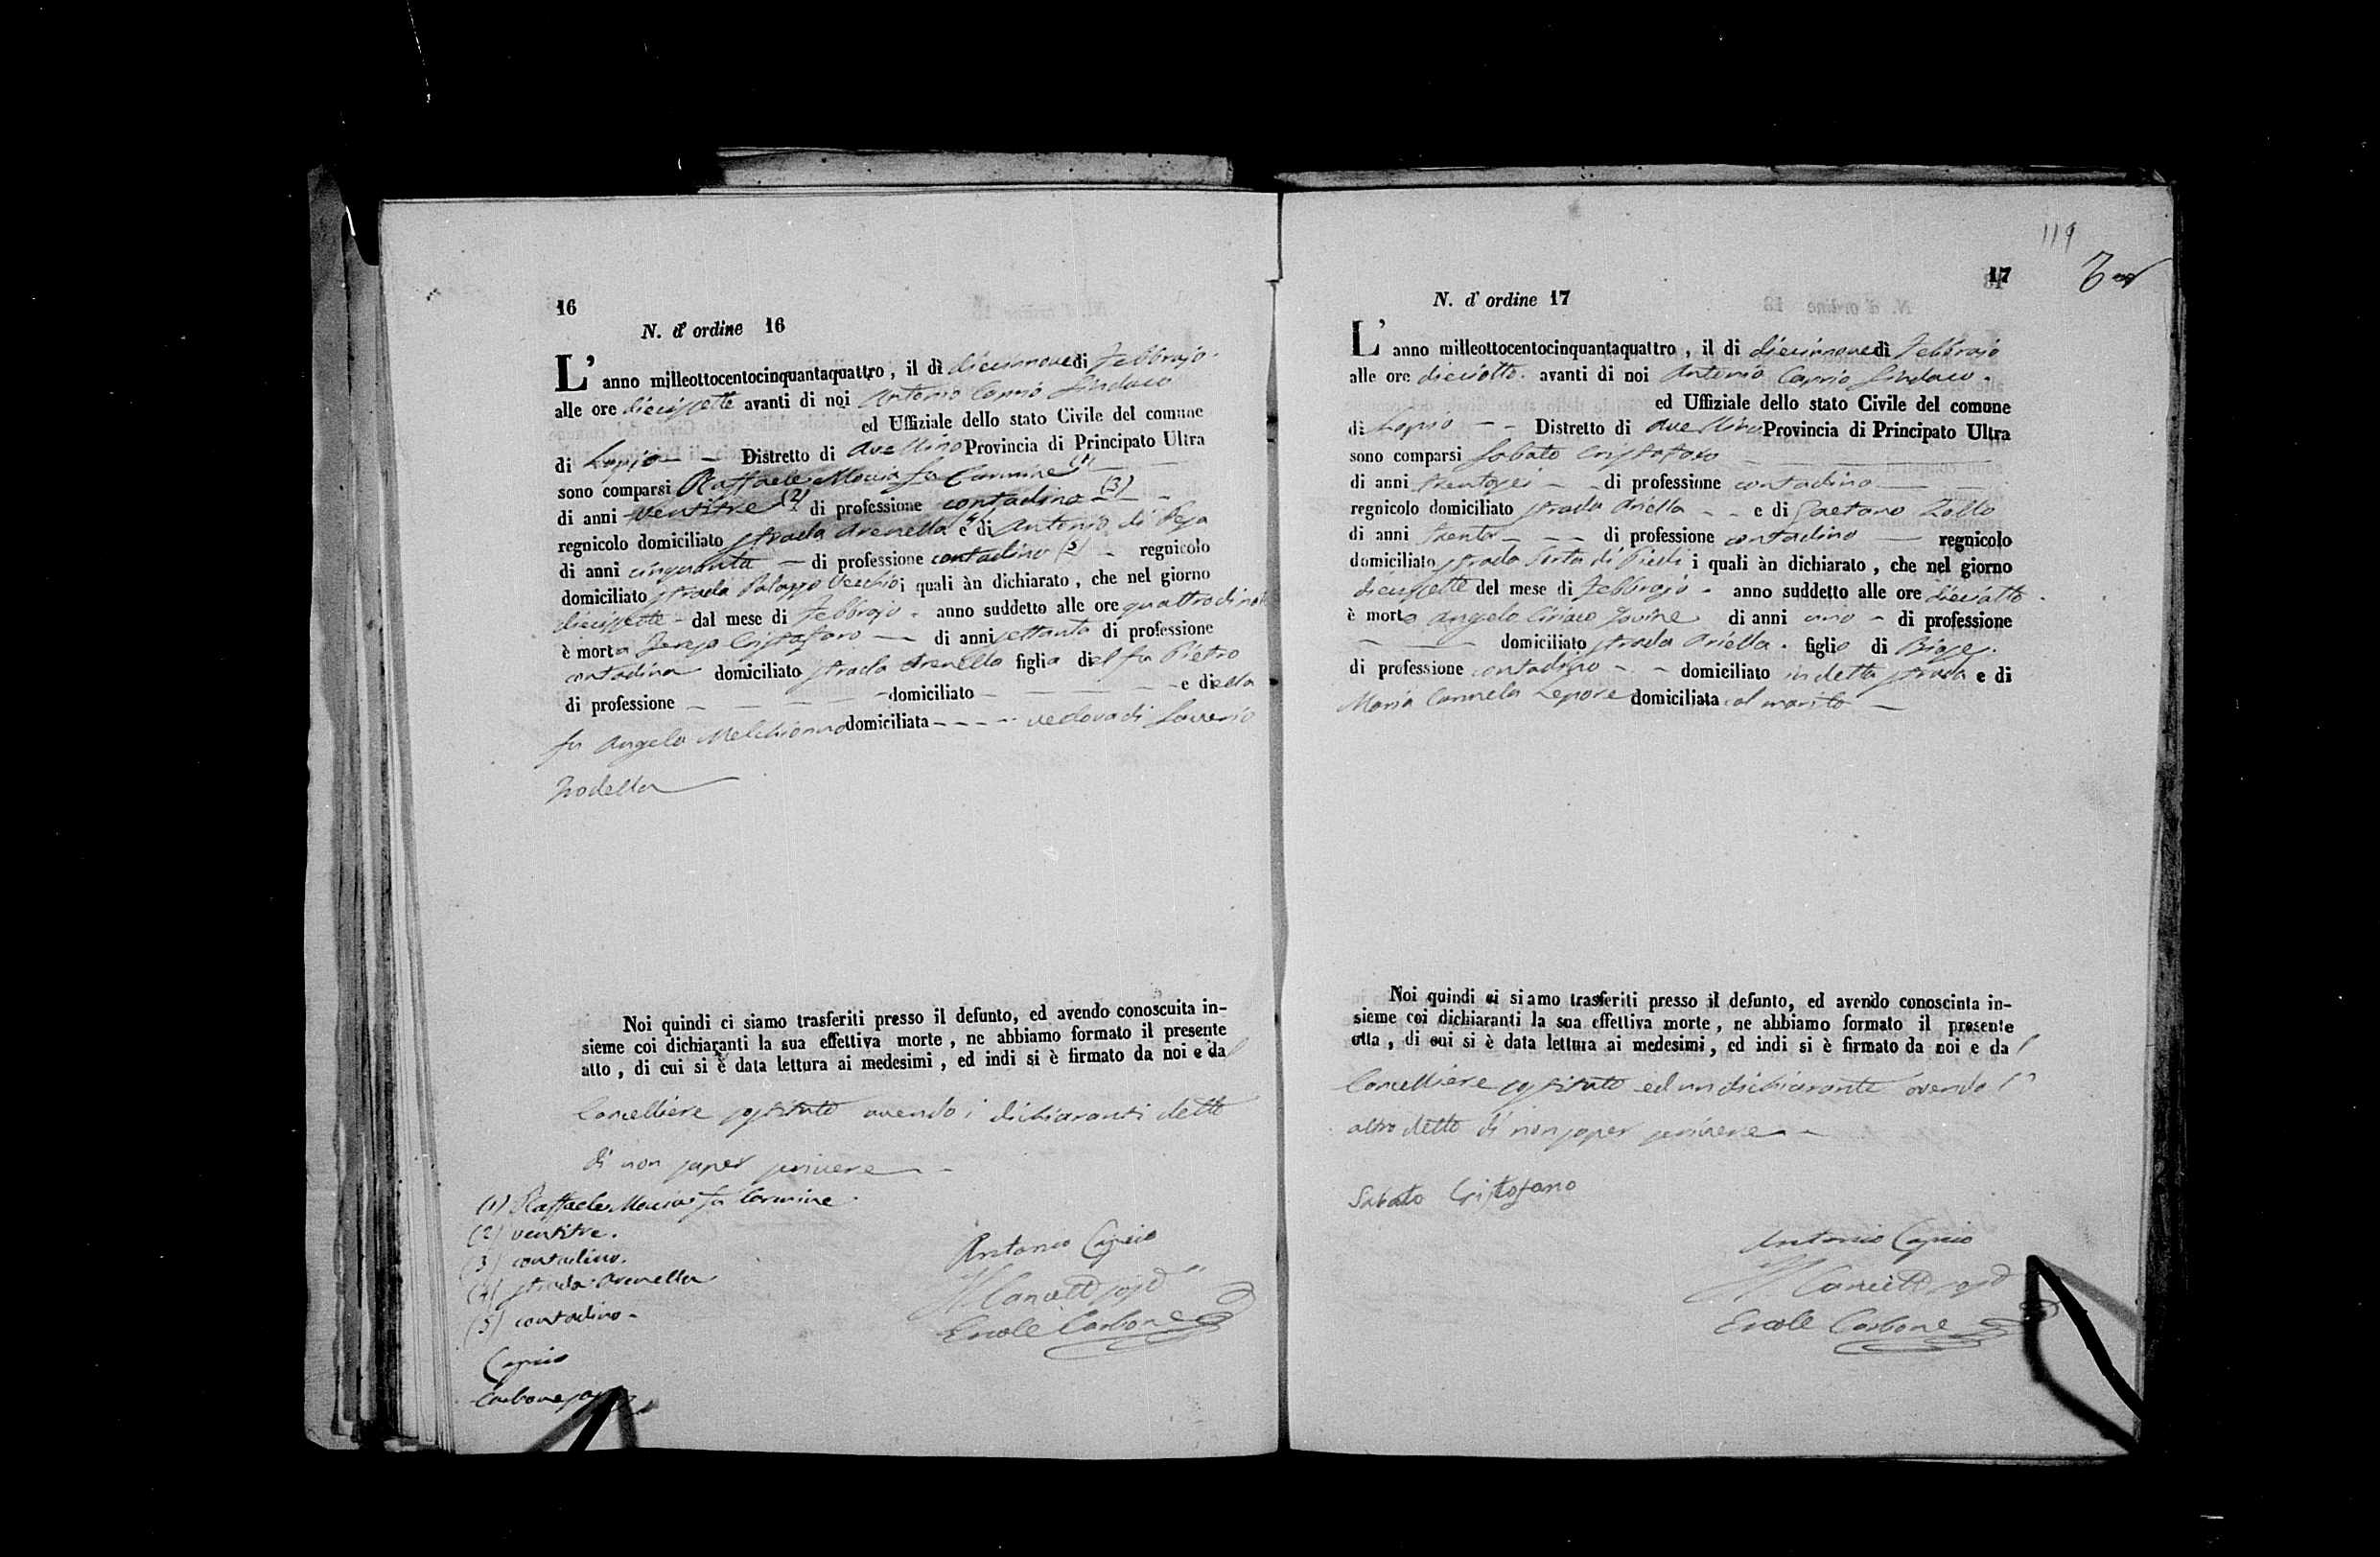 16
N. d' ordine 16
L' anno milleottocentocinquantaquattro, il dì diecinnove di Febbrajo.
alle ore diecissette avanti di noi Antonio Caprio Sindaco
ed Uffiziale dello stato Civile del comune
di Lapio - - Distretto di Avellino Provincia di Principato Ultra
sono comparsi Raffaele Moccia fu Carmine (1) -
di anni ventitre (2) di professione contadino - (3) - -
regnicolo domiciliato strada Arenella (4) e di Antonio di
di anni cinquanta - di professione contadino (5) - regnicolo
domiciliato strada Palazzo Vecchio i quali àn dichiarato, che nel giorno
diecissette - dal mese di Febbrajo - anno suddetto alle ore quattro di notte
è morta Cristofaro - - di anni settanta di professione
contadina domiciliato strada Arenella figlia del fu Pietro
di professione - - - - - domiciliato - - - - - e di ella
fu Angela Melchionno domiciliata - - - - - vedova di Saverio
Trodella
Noi quindi ci siamo trasferiti presso il defunto, ed avendo conoscuita in-
sieme coi dichiaranti la sua effettiva morte, ne abbiamo formato il presente
atto, di cui si è data lettura ai medesimi, ed indi si è firmato da noi e dal
Cancelliere sostituto avendo i dichiaranti detto
di non saper scrivere - -
(1) Raffaele Moccia fu Carmine.
(2) ventitre.
(3) contadino.
(4) strada Arenella
(5) contadino -
Antonio Caprio
Il Cancell. sost.
Ercole Carbone
Caprio
Carbone sost.
119
17
N. d' ordine 17
L' anno milleottocentocinquantaquattro, il di diecinnove dì Febbrajo
alle ore dieciotto. avanti di noi Antonio Caprio Sindaco.
ed Uffiziale dello stato Civile del comune
di Lapio - - Distretto di Avellino Provincia di Principato Ultra
sono comparsi Sabato Cristofaro
di anni trentasei - - di professione contadino
regnicolo domiciliato strada Ariella - - e di Gaetano Zollo
di anni trenta - - - di professione contadino - regnicolo
domiciliato strada di Piedi i quali àn dichiarato, che nel giorno
diecissette del mese di Febbrajo - anno suddetto alle ore dieciotto.
è morto Angelo Ciriaco Iovine di anni uno - di professione
- - - domiciliato strada Ariella. figlio di Biase.
di professione contadino - - - domiciliato in detta strada e di
Maria Carmela Lepore domiciliata col marito -
Noi quindi ci siamo trasferiti presso il defunto, ed avendo conosciuta in-
sieme coi dichiaranti la sua effettiva morte, ne abbiamo formato il presente
otta, di cui si è data lettura ai medesimi, ed indi si è firmato da noi e dal
Cancelliere sostituto ed un dichiarante avendo l'
altro detto di non saper scrivere - -
Sabato Cristofano
Antonio Caprio
Il Cancell. sost.
Ercole Carbone